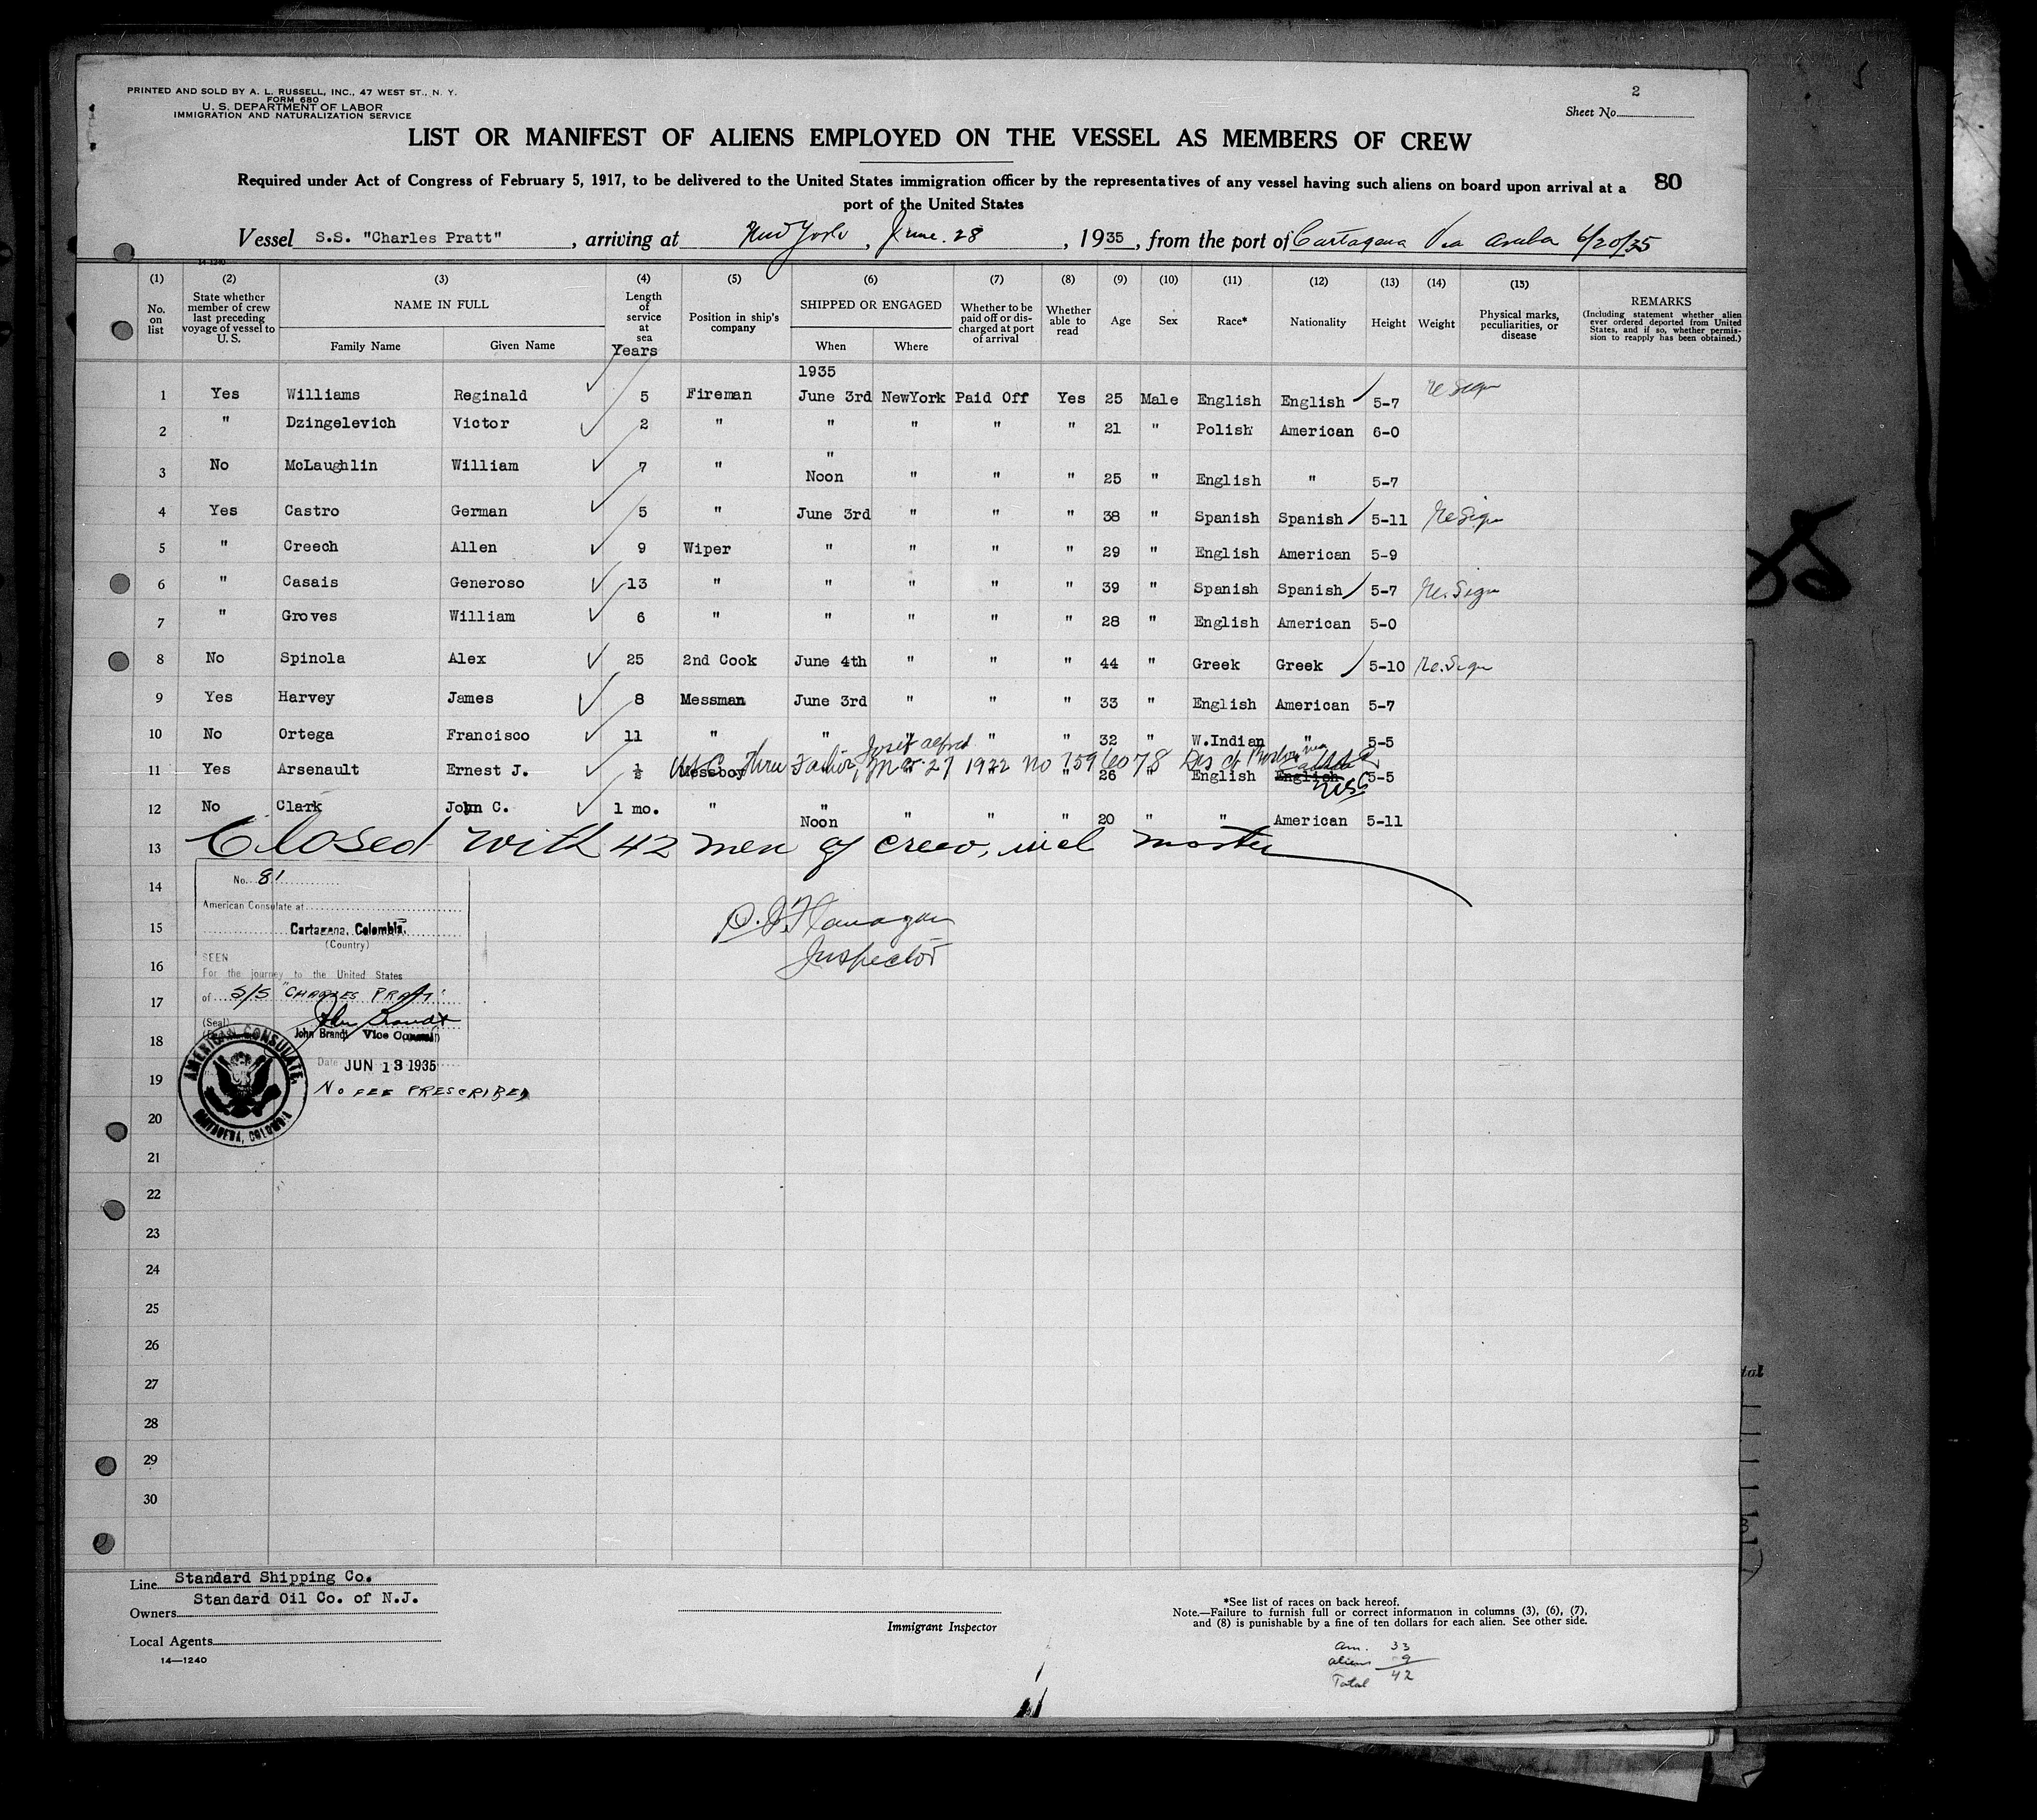 PRINTED AND SOLD BY A. L. RUSSELL, INC., 47 WEST ST., N. Y.
FORM 680
U. S. DEPARTMENT OF LABOR
IMMIGRATION AND NATURALIZATION SERVICE
2
Sheet No.
LIST OR MANIFEST OF ALIENS EMPLOYED ON THE VESSEL AS MEMBERS OF CREW
Required under Act of Congress of February 5, 1917, to be delivered to the United States immigration officer by the representatives of any vessel having such aliens on board upon arrival at a
port of the United States
80
Vessel S.S. "Charles Pratt", arriving at New York, June. 28, 1935, from the port of Cartagena Via Aruba 6/20/35
14-1240
(1) (2) (3) (4) (5) (6) (7) (8) (9) (10) (11) (12) (13) (14) (15)
No. on list
State whether member of crew last preceding voyage of vessel to U. S.
NAME IN FULL
Family Name Given Name
Length of service at sea
Years
Position in ship's company
SHIPPED OR ENGAGED
When Where
Whether to be paid off or discharged at port of arrival
Whether able to read
Age
Sex
Race*
Nationality
Height
Weight
Physical marks, peculiarities, or disease
REMARKS
(Including statement whether alien ever ordered deported from United States, and if so, whether permission to reapply has been obtained.)
1935
1 Yes Williams Reginald 5 Fireman June 3rd NewYork Paid Off Yes 25 Male English English 5-7 re sign
2 " Dzingelevich Victor 2 " " " " " 21 " Polish American 6-0
3 No McLaughlin William 7 " " Noon " " " 25 " English " 5-7
4 Yes Castro German 5 " June 3rd " " " 38 " Spanish Spanish 5-11 Re Sign
5 " Creech Allen 9 Wiper " " " " 29 " English American 5-9
6 " Casais Generoso 13 " " " " " 39 " Spanish Spanish 5-7 Re. Sign
7 " Groves William 6 " " " " " 28 " English American 5-0
8 No Spinola Alex 25 2nd Cook June 4th " " " 44 " Greek Greek 5-10 Re. Sign
9 Yes Harvey James 8 Messman June 3rd " " " 33 " English American 5-7
10 No Ortega Francisco 11 " " " " " 32 " W.Indian " 5-5
Josef alfred
USC Thru Father, Mar 27 1922 no 1596078 Dis ct
11 Yes Arsenault Ernest J. ½ Messboy " " " " 26 " English English 5-5
USC
12 No Clark John C. 1 mo. " " Noon " " " 20 " " American 5-11
13 Closed with 42 men of crew, incl master
14
15
16
17
18
19
20
21
22
23
24
25
26
27
28
29
30
No. 81
American Consulate at
Cartagena, Colombia.
(Country)
SEEN
For the journey to the United States
of S/S "CHARLES PRATT"
(Seal)
John Brandt
John Brandt Vice Consul
Date JUN 13 1935
NO FEE PRESCRIBED
AMERICAN CONSULATE,
CARTAGENA, COLOMBIA
D. J. Flanagan
Inspector
Line Standard Shipping Co.
Owners Standard Oil Co. of N.J.
Local Agents
14—1240
Immigrant Inspector
*See list of races on back hereof.
Note.—Failure to furnish full or correct information in columns (3), (6), (7),
and (8) is punishable by a fine of ten dollars for each alien. See other side.
Am. 33
aliens 9
Total 42
tal